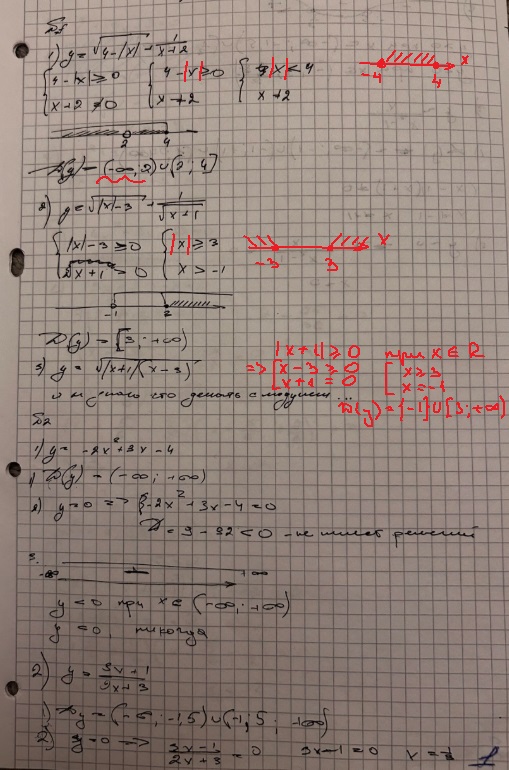 1) y = √(4-|x|) + 1/(x+2)
{ 4-|x| ≥ 0 { 4-|x| ≥ 0 { |x| < 4
x+2 ≠ 0 x≠2 x≠2
-4 4 x
2 4
D(y) = (-∞; 2) ∪ (2; 4]
2) y = √(|x|-3) + 1/√(x+1)
{ |x|-3 ≥ 0 { |x| ≥ 3
√x+1 > 0 x > -1
-3 3 x
-1 2
D(y) = [3; +∞)
3) y = √(|x+1|(x-3))
я не знаю что делать с модулем...
|x+1| ≥ 0 при x ∈ R
=> [ x-3 ≥ 0 [ x ≥ 3
x+1 = 0 x = -1
D(y) = {-1} ∪ [3; +∞)
№2
1) y = -2x²+3x-4
1) D(y) = (-∞; +∞)
2) y=0 => -2x²+3x-4=0
D = 9-32 < 0 - не имеет решений
3.
-∞ - +∞
y < 0 при x ∈ (-∞; +∞)
y < 0, никогда
2) y = 3x+1/2x+3
1) Dy = (-∞; -1,5) ∪ (-1,5; +∞)
2) y=0 => 3x-1/2x+3 = 0 3x-1=0 x = 1/3